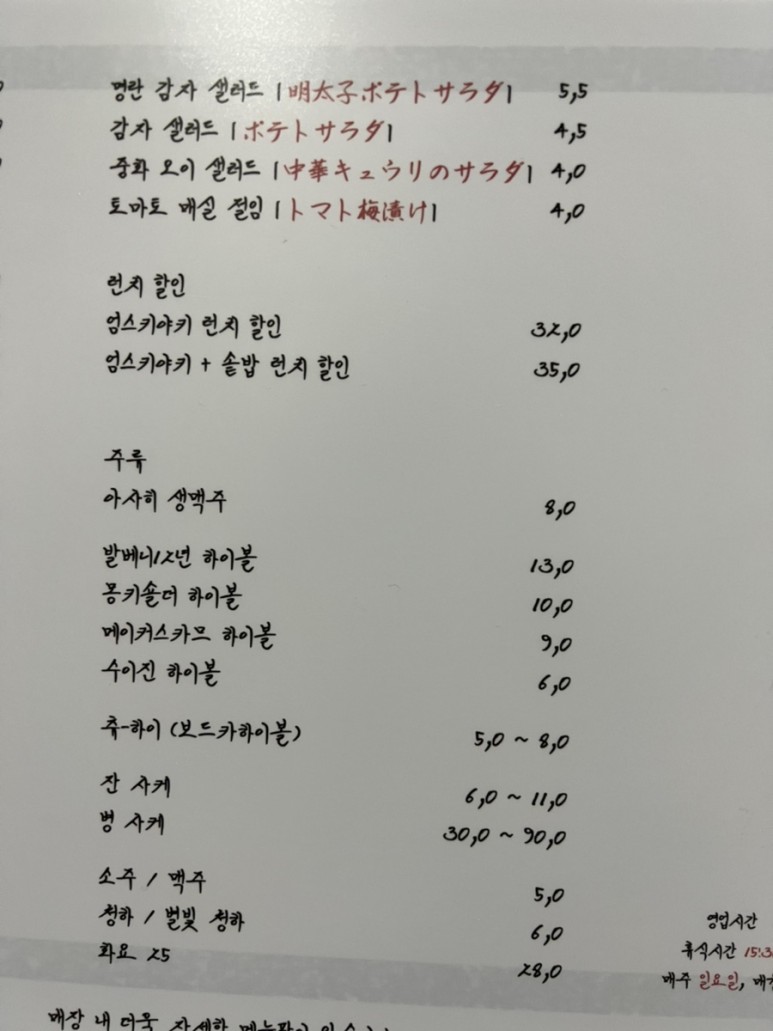 명란 감자 샐러드 |明太子ポテトサラダ| 5,5
감자 샐러드 |ポテトサラダ| 4,5
중화 오이 샐러드 |中華キュウリのサラダ| 4,0
토마토 매실 절임 |トマト梅漬け| 4,0
런치 할인
엄스키야키 런치 할인 32,0
엄스키야키 + 솥밥 런치 할인 35,0
주류
아사히 생맥주 8,0
발베니12년 하이볼 13,0
몽키숄더 하이볼 10,0
메이커스카므 하이볼 9,0
수이진 하이볼 6,0
츄-하이 (보드카하이볼) 5,0 ~ 8,0
잔 사케 6,0 ~ 11,0
병 사케 30,0 ~ 90,0
소주 / 맥주 5,0
청하 / 별빛 청하 6,0
화요 25 28,0
영업시간
휴식시간 15:3
매주 일요일,
매장 내 더욱 자세한 메뉴판이